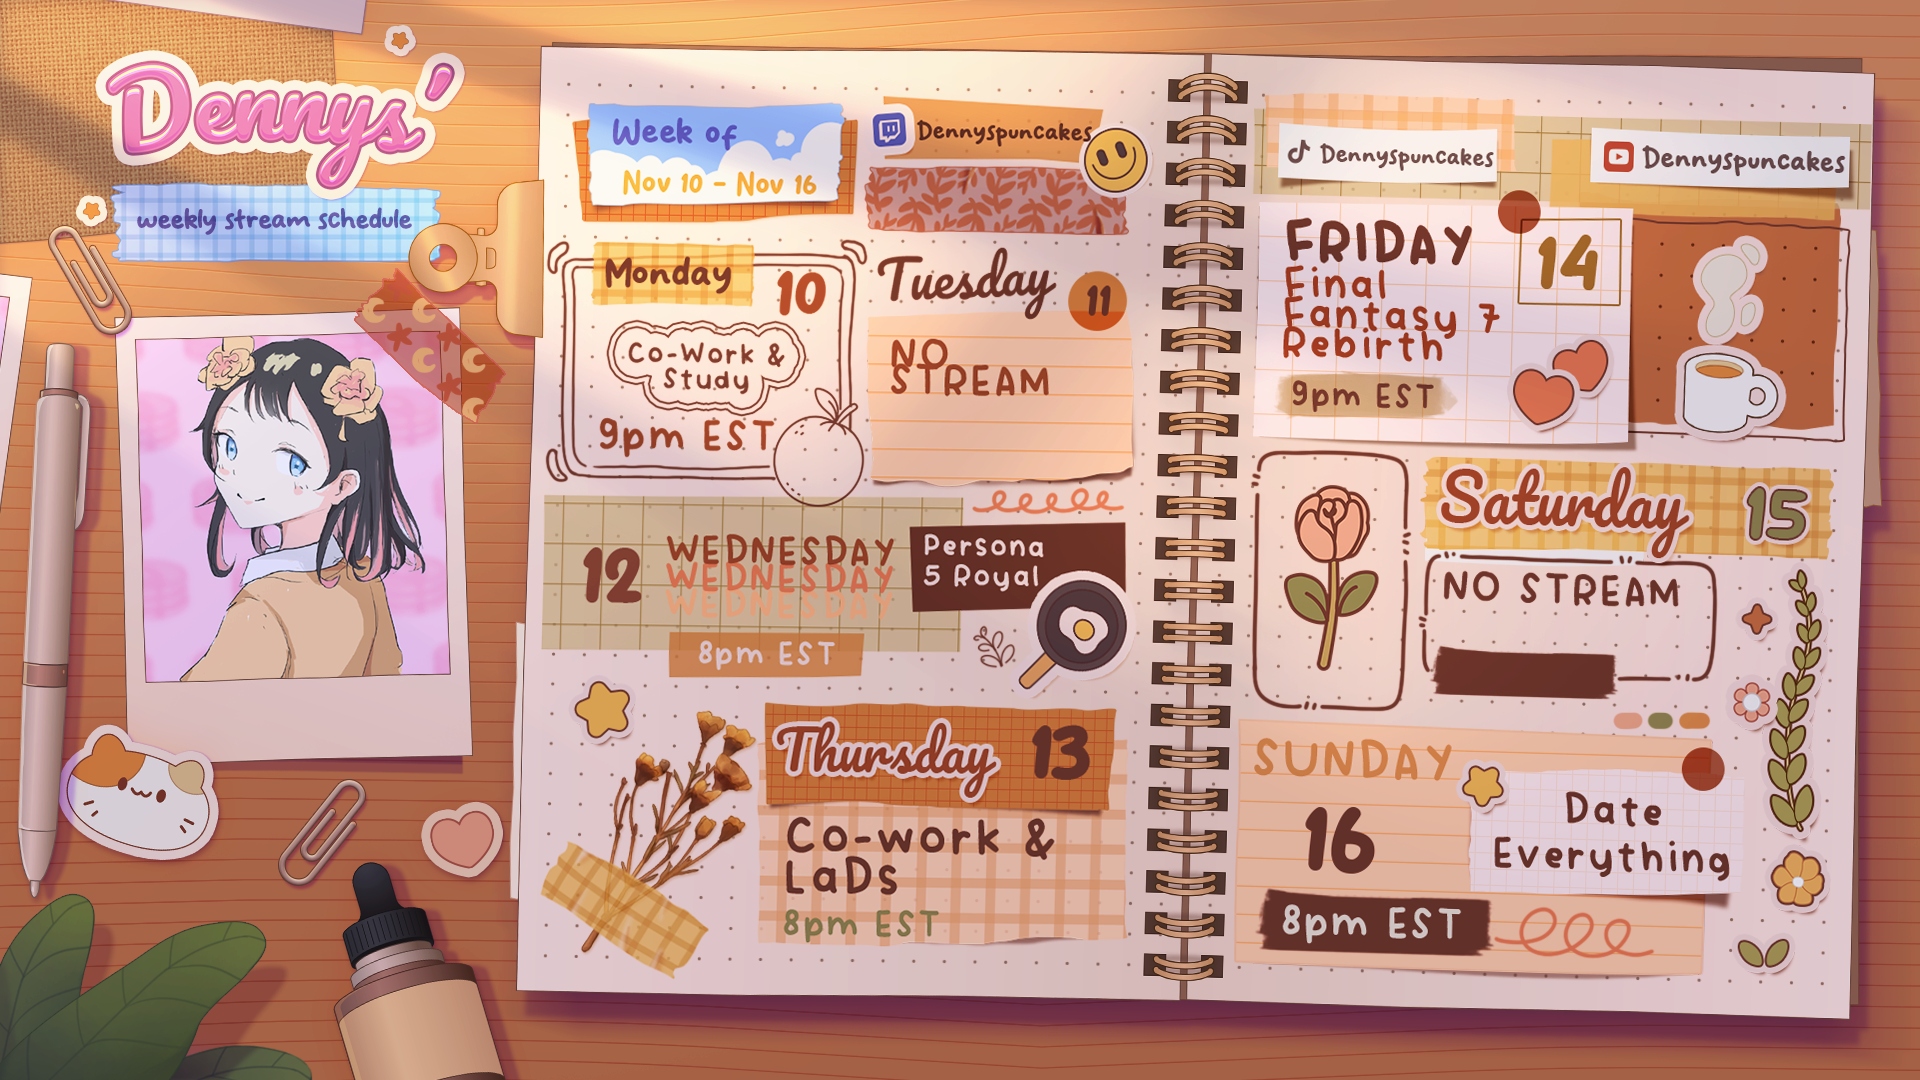 Dennys'
weekly stream schedule
Week of
Nov 10 - Nov 16
Dennyspuncakes
Dennyspuncakes
Dennyspuncakes
Monday
10
Co-Work &
Study
9pm EST
Tuesday
11
NO
STREAM
12
WEDNESDAY
WEDNESDAY
WEDNESDAY
Persona
5 Royal
8pm EST
Thursday
13
Co-work &
LaDs
8pm EST
FRIDAY
14
Final
Fantasy 7
Rebirth
9pm EST
Saturday
15
NO STREAM
SUNDAY
16
Date
Everything
8pm EST